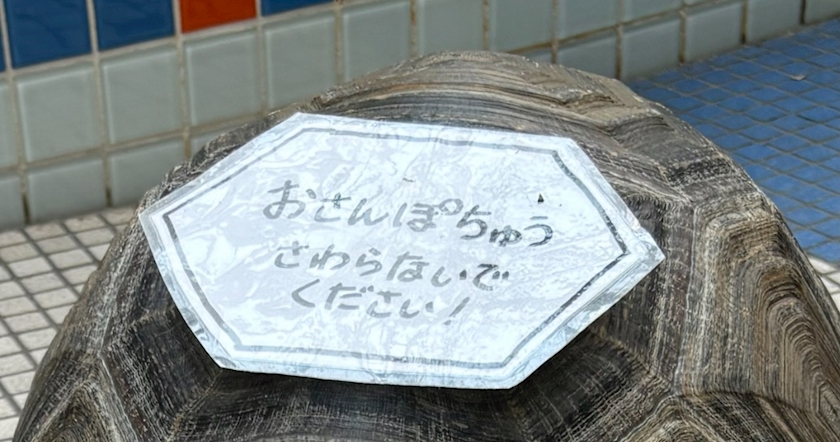 おさんぽちゅう
さわらないで
ください!